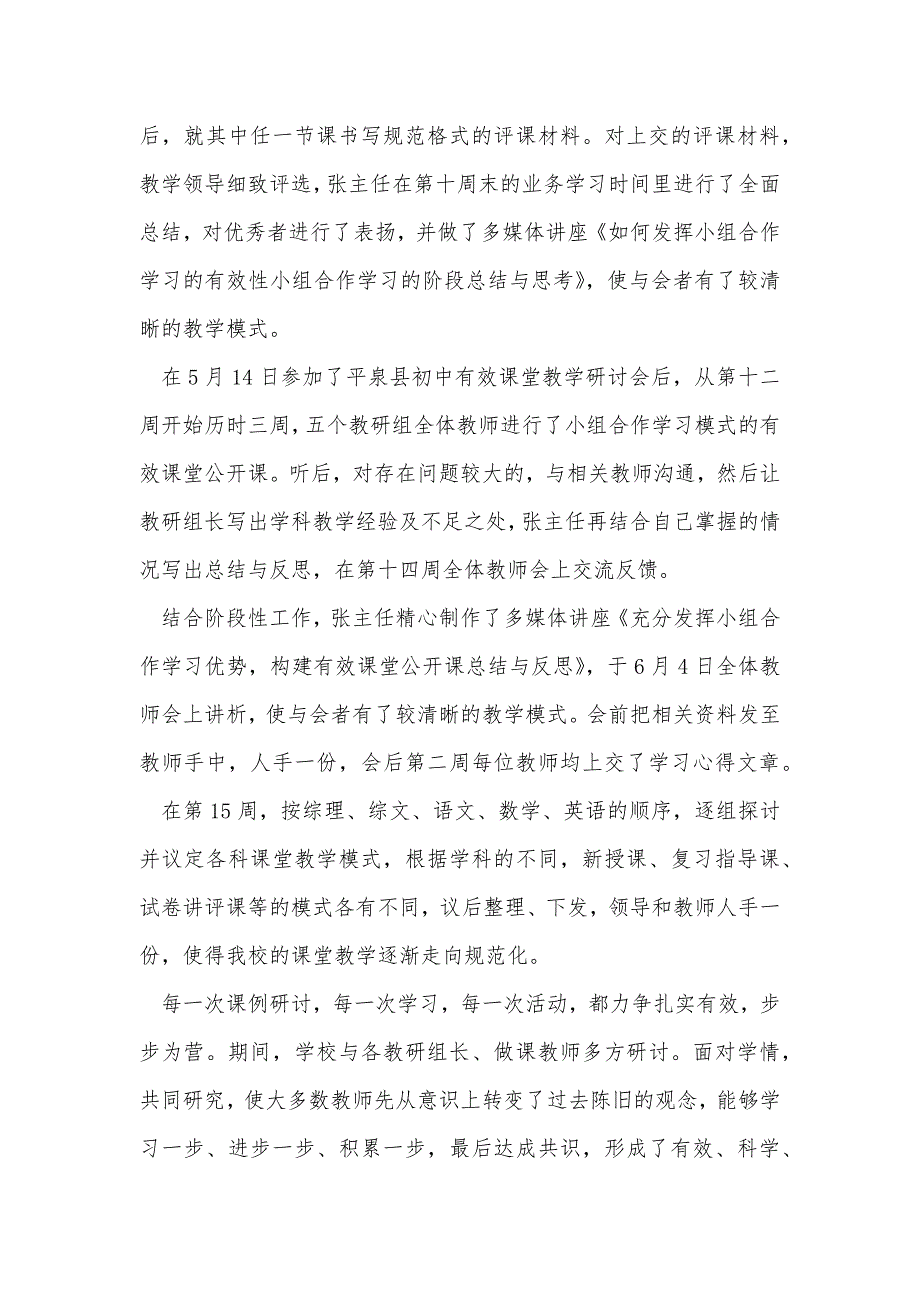 后，就其中任一节课书写规范格式的评课材料。对上交的评课材料，
教学领导细致评选，张主任在第十周末的业务学习时间里进行了全面
总结，对优秀者进行了表扬，并做了多媒体讲座《如何发挥小组合作
学习的有效性小组合作学习的阶段总结与思考》，使与会者有了较清
晰的教学模式。
在 5 月 14 日参加了平泉县初中有效课堂教学研讨会后，从第十二
周开始历时三周，五个教研组全体教师进行了小组合作学习模式的有
效课堂公开课。听后，对存在问题较大的，与相关教师沟通，然后让
教研组长写出学科教学经验及不足之处，张主任再结合自己掌握的情
况写出总结与反思，在第十四周全体教师会上交流反馈。
结合阶段性工作，张主任精心制作了多媒体讲座《充分发挥小组合
作学习优势，构建有效课堂公开课总结与反思》，于 6 月 4 日全体教
师会上讲析，使与会者有了较清晰的教学模式。会前把相关资料发至
教师手中，人手一份，会后第二周每位教师均上交了学习心得文章。
在第 15 周，按综理、综文、语文、数学、英语的顺序，逐组探讨
并议定各科课堂教学模式，根据学科的不同，新授课、复习指导课、
试卷讲评课等的模式各有不同，议后整理、下发，领导和教师人手一
份，使得我校的课堂教学逐渐走向规范化。
每一次课例研讨，每一次学习，每一次活动，都力争扎实有效，步
步为营。期间，学校与各教研组长、做课教师多方研讨。面对学情，
共同研究，使大多数教师先从意识上转变了过去陈旧的观念，能够学
习一步、进步一步、积累一步，最后达成共识，形成了有效、科学、